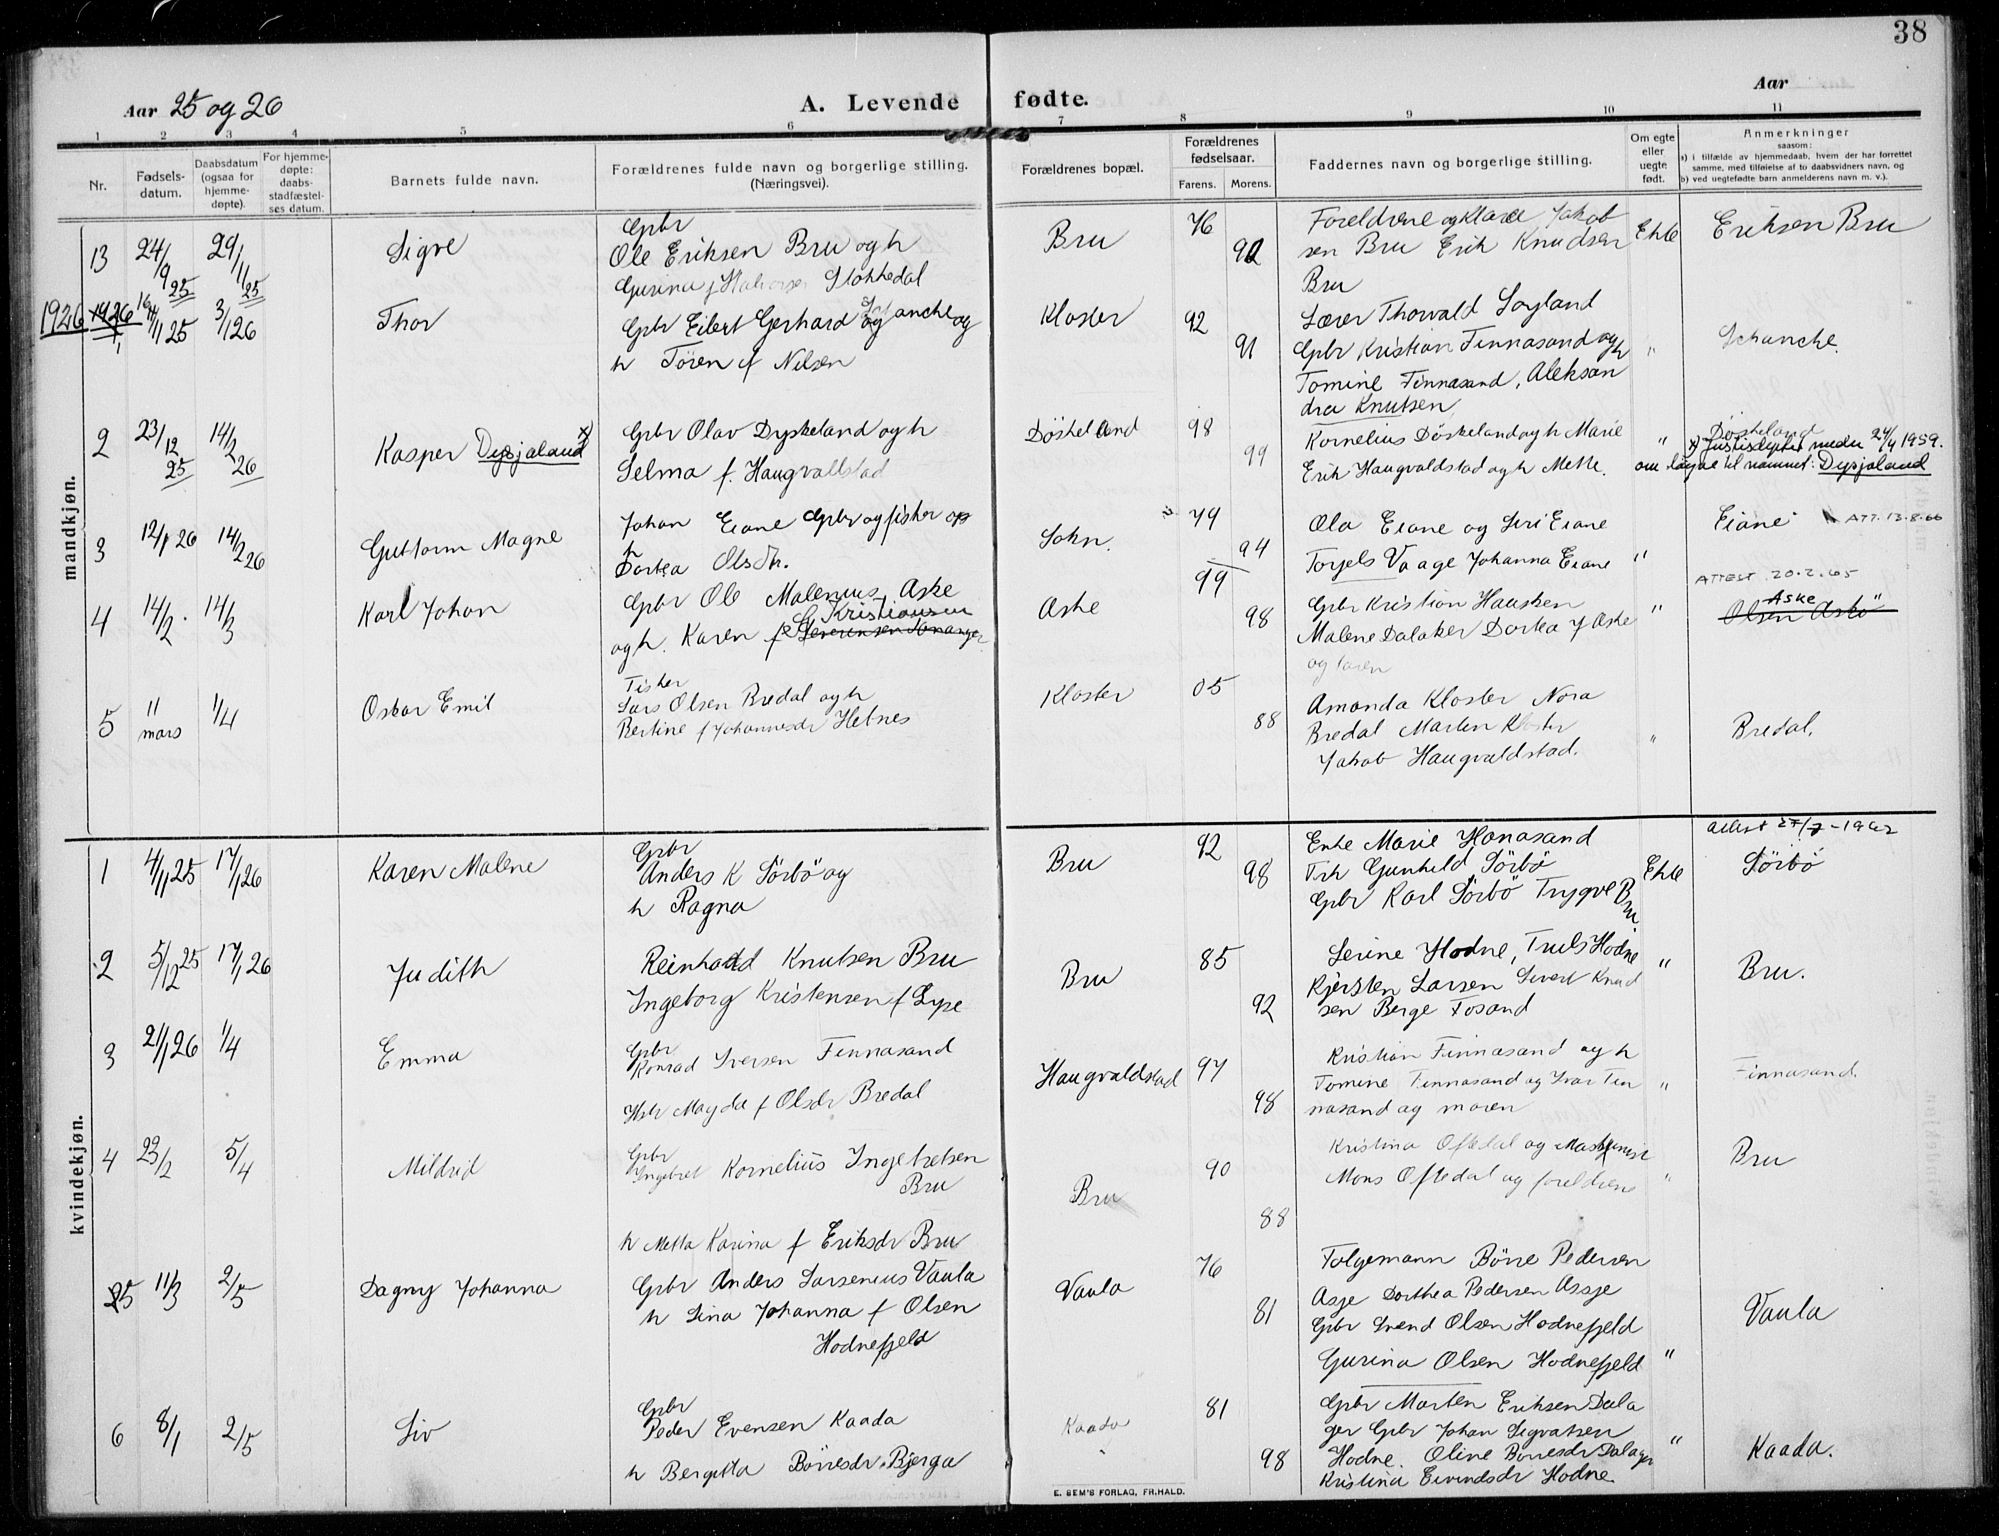 38
Aar 25 og 26
A. Levende fødte.
Aar
1 2 3 4 5 6 7 8 9 10 11
Nr.
Fødsels-
datum.
Daabsdatum
(ogsaa for
hjemme-
døpte).
For hjemme-
døpte:
daabs-
stadfæstel-
ses datum.
Barnets fulde navn.
Forældrenes fulde navn og borgerlige stilling.
(Næringsvei).
Forældrenes bopæl.
Forældrenes
fødselsaar.
Farens. Morens.
Faddernes navn og borgerlige stilling.
Om egte
eller
uegte
født.
Anmerkninger
saasom:
a) i tilfælde av hjemmedaab, hvem der har forrettet
samme, med tilføielse af to daabsvidners navn, og
b) ved uegtefødte barn anmelderens navn m. v.).
mandkjøn.
13 24/9 25 29/11 25 Sigve
Gpbr
Ole Eriksen Bru og h
Gurina f Halvorsen Stokkedal
Bru 76 92
Foreldrene og Klara Jakob
sen Bru Erik Knudsen
Bru
Ekte Eriksen Bru
1926 1926
1 16/11 25 3/1 26 Thor
Gpbr Eilert Gerhard Schanche og
h Tören f Nilsen
Kloster 92 91
Lærer Thorvald Soyland
Gpbr Kristian Finnasand og h
Tomine Finnasand, Aleksan
dra Knutsen
" Schanche.
2 23/12 25 14/2 26 Kasper Dysjaland x)
Gpbr Olav Dyskeland og h
Selma f. Haugvallstad
Döskeland 98 99
Kornelius Döskeland og h Marie
Erik Haugvaldstad og h Mette.
" Döskeland
x) Justisdeptet medu 24/4 1959.
om løyve til namnet: Dysjaland
3 12/1 26 14/2 26 Guttorm Magne
Johan Eiane Gpbr og fisker og
h
Dortea Olsdtr.
Sokn. 79 94
Ola Eiane og Siri Eiane
Torjels Vaage Johanna Eiane
" Eiane ATT. 13.8.66
4 14/2. 14/3 Karl Johan
Gpbr Ole Malenius Aske
og h. Karen f Kristiansen
Aske 99 98
Gpbr Kristian Hausken
Malene Dalaker Dortea J Aske
og faren
" ATTEST 20.2.65
Aske
Olsen Askö
5 11 mars 1/4 Oskar Emil
Fisker
Lars Olsen Bredal og h
Bertine f Johannesdr Hetnes
Kloster 05 88
Amanda Kloster Nora
Bredal Marten Kloster
Jakob Haugvaldstad.
" Bredal.
kvindekjøn.
1 4/11 25 17/1 26 Karen Malene
Gpbr
Anders K Sörbö og
h Ragna
Bru 92 98
Enke Marie Hanasand
Frk Gunhild Sörbö
Gpbr Karl Sörbö Trygve Bru
Ekte attest 27/7-1962
Sörbö
2 5/12 25 17/1 26 Judith
Reinhard Knutsen Bru
Ingeborg Kristensen f Lype
Bru 85 92
Serine Hodne, Truls Hodne
Kjersten Larsen Sivert Knud
sen Berge Fosand
" Bru.
3 21/1 26 1/4 Emma
Gpbr
Konrad Iversen Finnasand
Hstr Magda f Olsdr Bredal
Haugvaldstad 97 98
Kristian Finnasand og h
Tomine Finnasand og Ivar Fin
nasand og moren
" Finnasand.
4 23/2 5/4 Mildrid
Gpbr
Ingebret Kornelius Ingebretsen
Bru
h Metta Karina f Eriksdr Bru
Bru 90 88
Kristina Oftedal og Maskinist
Mons Oftedal og foreldrene
" Bru
5 11/3 2/5 Dagny Johanna
Gpbr Anders Larsenius Vaula
h Lina Johanna f Olsen
Hodnefjeld
Vaula 76 81
Folgemann Börre Pedersen
Asje Dorthea Pedersen Assje
Gpbr Svend Olsen Hodnefjeld
Gurina Olsen Hodnefjeld
" Vaula
6 8/1 2/5 Liv
Gpbr
Peder Evensen Kaada
h Bergitta Börresdr. Bjerga
Kaada 81 98
Gpbr Marten Eriksen Dala
ger Gpbr Johan Sigvatsen
Hodne. Oline Börresdr Dalager
Kristina Eivindsdr Hodne.
" Kaada.
E. SEM'S FORLAG, FR.HALD.